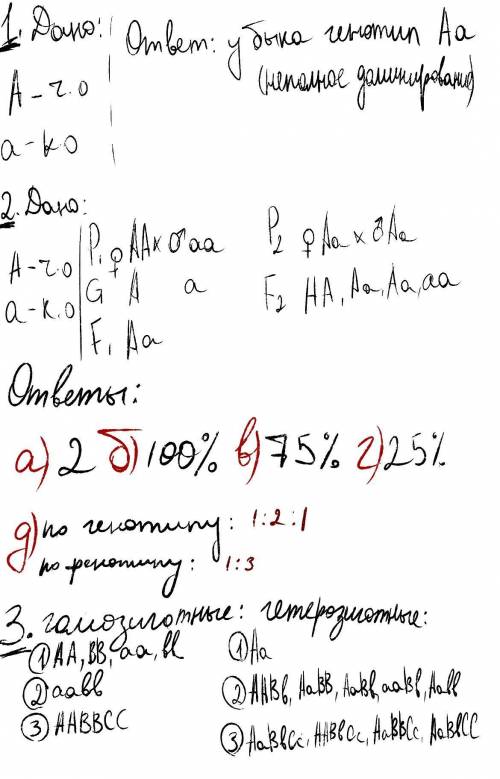 1. Дано:
Ответ: у быка генотип Аа
(неполное доминирование)
А - ч.о
а - к.о
2. Дано:
А - ч.о
а - к.о
P₁ ♀ АА x ♂ аа
G А а
F₁ Аа
P₂ ♀ Аа x ♂ Аа
F₂ АА, Аа, Аа, аа
Ответы:
а) 2 б) 100% в) 75% г) 25%
д) по генотипу: 1:2:1
по фенотипу: 1:3
3. гомозиготные: гетерозиготные:
① АА, ВВ, аа, вв ① Аа
② аавв ② ААВв, АаВВ, АаВв, ааВв, Аавв
③ ААВВСС ③ АаВвСс, ААВвСс, АаВВСс, АаВвСС